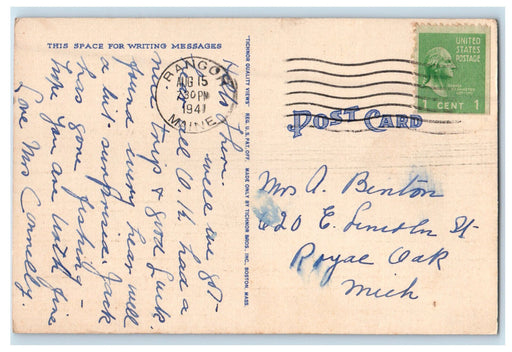 THIS SPACE FOR WRITING MESSAGES
Hello
well we got
all O.K. had a
nice trip & good luck.
found every hear well
a bit surprised. Jack
has gone fishing -
hope you are well fine
Love Mrs Connelly
TICHNOR QUALITY VIEWS REG. U.S. PAT. OFF. MADE ONLY BY TICHNOR BROS., INC., BOSTON, MASS.
BANGOR
AUG 15
PM
1941
MAINE
UNITED
STATES
POSTAGE
1 CENT 1
POST CARD
Mrs A. Benton
620 E. Lincoln St
Royal Oak
Mich